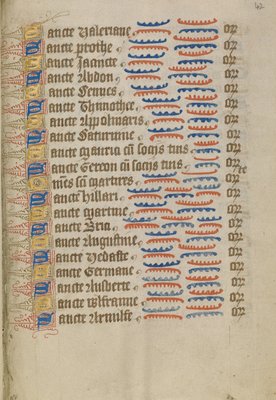 42
Sancte Valeriane or
Sancte prothe or
Sancte Jaincte or
Sancte Abdon or
Sancte Sennes or
Sancte Thimothee or
Sancte Appolinaris or
Sancte Saturnine or
Sancte mauria cū sociis tuis or
Sancte Gereon cū sociis tuis or
Omēs sāi martires orate
Sancte hillari or
Sancte martine or
Sancte Bria or
Sancte Augustine or
Sancte Vedaste or
Sancte Germane or
Sancte Ausberte or
Sancte Wlfranne or
Sancte Arnulfe or